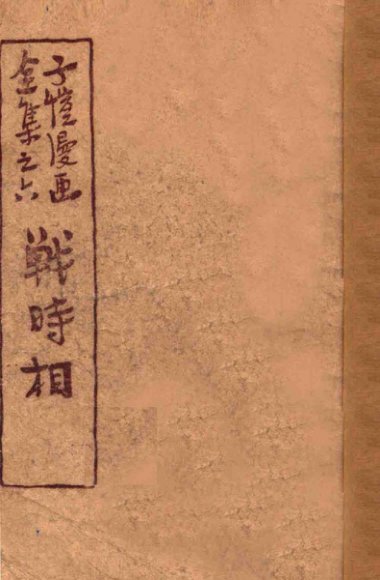 子恺漫画
全集之六
戰時相